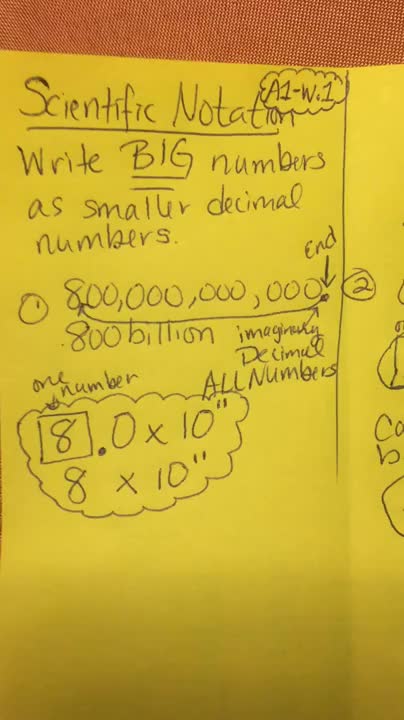 Scientific Notation
A1-W.1
Write BIG numbers
as smaller decimal
numbers.
End
① 800,000,000,000.
800 billion
imaginary
Decimal
ALL Numbers
one number
8.0 x 10¹¹
8 x 10¹¹
②